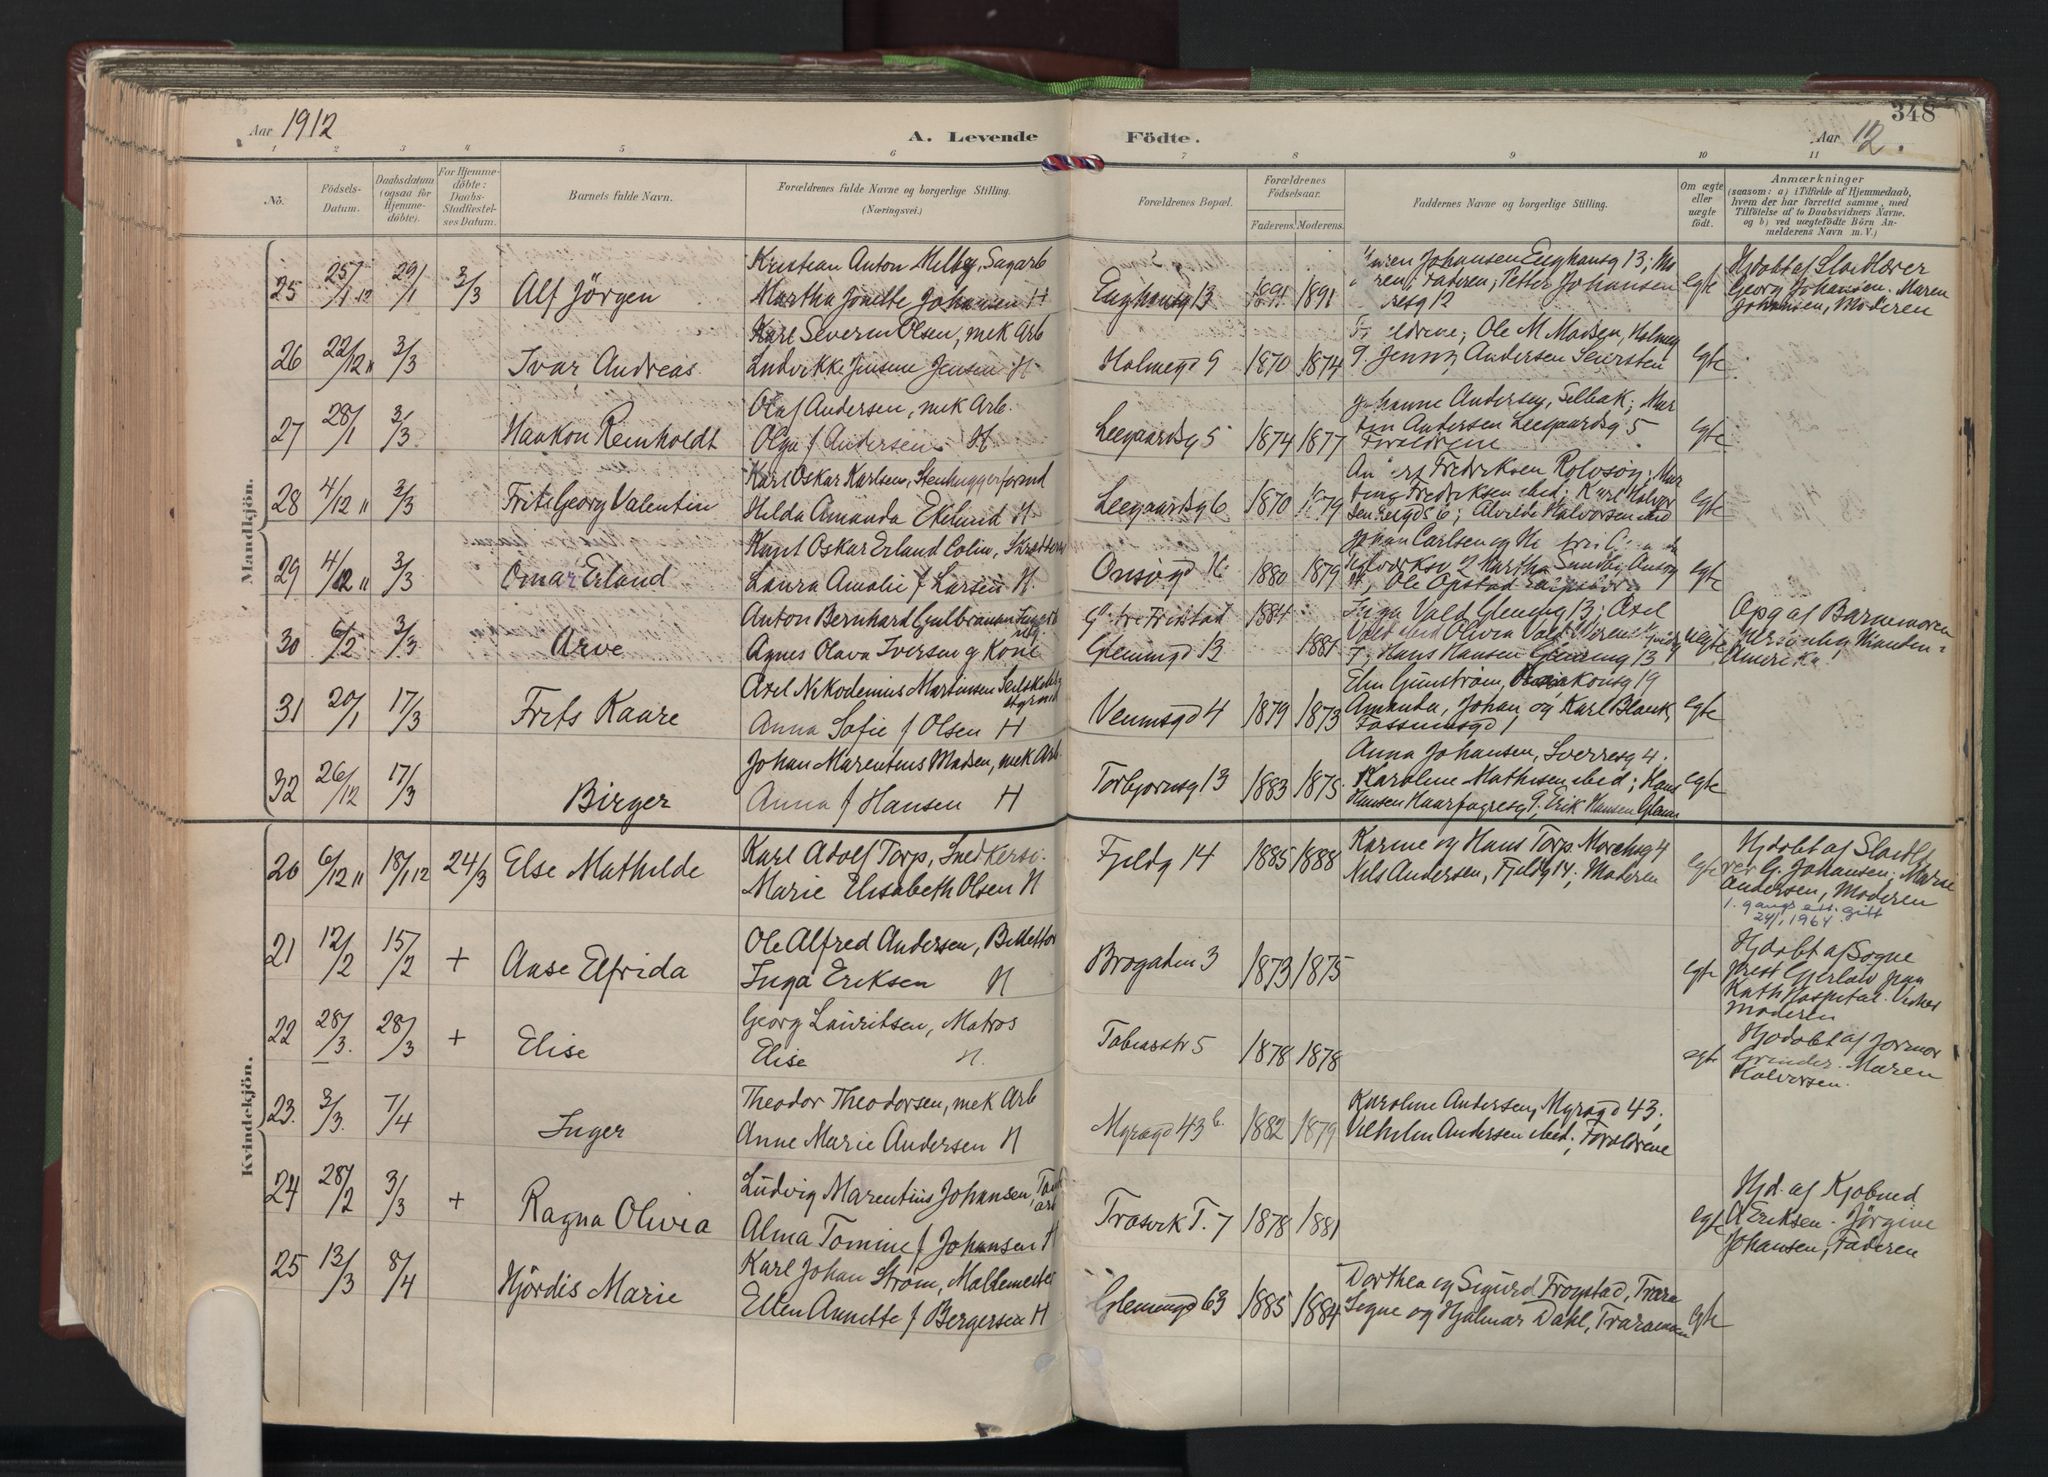 348
Aar 1912
A. Levende Födte.
Aar 12.
1 2 3 4 5 6 7 8 9 10 11
No.
Födsels-Datum.
Daabsdatum (ogsaa for Hjemme-döbte).
For Hjemme-döbte: Daabs-Stadfæstel-ses Datum.
Barnets fulde Navn.
Forældrenes fulde Navne og borgerlige Stilling.
(Næringsvei.)
Forældrenes Bopæl.
Forældrenes Födselsaar.
Faderens. Moderens.
Faddernes Navne og borgerlige Stilling.
Om ægte eller uægte födt.
Anmærkninger
(saasom: a) i Tilfælde af Hjemmedaab, hvem der har forrettet samme, med Tilföielse af to Daabsvidners Navne, og b) ved uægtefödte Börn An-melderens Navn m. V.)
Mandkjön.
25 25/1 12 29/1 3/3 Alf Jörgen
Kristian Anton Melby, Sagarb
Martha Jonette Johansen H
Enghausg 13 1891 1891
Johansen Enghausg 13; Mo
ren; Faderen; Petter Johansen
egte
Hjdøbt af
Georg Johansen. Maren
Johansen, Moderen
26 22/12 11 3/3 Ivar Andreas
Karl Severin Olsen, mek Arb
Ludvikke Jensine Jensen H
Holmegd 9 1870 1874
Ole M Madsen, Holmeg
9. Jenny Andersen
egte
27 28/1 3/3 Haakon Reinholdt
Olaf Andersen, mek Arb.
Olga f Andersen H
Leegaardsg 5 1874 1877
Johanne Andersen, Selbak; Mar
tin Andersen Leegaardsg 5
Foreldrene
egte
28 4/12 11 3/3 Frits Georg Valentin
Karl Oskar Karlsen, Stenhuggerformd
Hilda Amanda Ekelund H
Leegaardsg 6 1870 1879
Fredriksen Rolvsøy; Mar
Fredriksen ibid; Karl Halvor
sen; Alvilde Halvorsen ibid
egte
29 4/12 11 3/3 Omar Erland
Knut Oskar Erland Colin, Skrædder
Laura Amalie f Larsen H
Onsøgd 16 1880 1879
Johan Carlsen og
Martha Sundby
Ole Opstad
egte
30 6/2 3/3 Arve
Anton Bernhard Gulbransen
Agnes Olava Iversen g Kone
Fredstad 1884
Glemmegd 13 1881
Inga Vold Glemg 13; Axel
Vold ibid Olivia Vold
7, Hans Hansen Glemmg 13
uegte
Opg af Barnemoren
Amerika
31 20/1 17/3 Frits Kaare
Axel Nikodemius Martinsen
Anna Sofie f Olsen H
Venusgd 4 1879 1873
Elin Gunstrøm, 19
Amanda, Johan og Karl Blank,
Fossumsgd 1
egte
32 26/12 17/3 Birger
Johan Marentius Madsen, mek Arb.
Anna f Hansen H
Torbjornsg 13 1883 1875
Anna Johansen, Sverresg 4.
Karoline Mathisen ibid; Hans
Hansen Haarfagresg 9; Erik Hansen Glemm
egte
Kvindekjön.
20 6/12 11 18/1 12 24/3 Else Mathilde
Karl Adolf Torp, Snedkersv.
Marie Elisabeth Olsen H
Fjeldg 14 1885 1888
Karine og Hans Torp 4
Nils Andersen, Fjeldg 14; Moderen
egte
Hjdøbt af
G. Johansen; Marie
Andersen, Moderen
1. gangs att. gift
24/1, 1964.
21 12/2 15/2 + Aase Elfrida
Ole Alfred Andersen, Billettør
Inga Eriksen H
Brogaden 3 1873 1875
egte
Hjdøbt af Sogne
prest Gjerløw paa
Kath Hospital.
Moderen
22 28/3. 28/3 + Elise
Georg Lauritsen, Matros
Elise H.
Tobiasstr 5 1878 1878
egte
Hjdøbt af Jormor
Maren
Halvorsen.
23. 3/3. 7/4 Inger
Theodor Theodorsen, mek Arb
Anne Marie Andersen H
Myragd 43 b. 1882 1879
Karoline Andersen, Myragd 43,
Vilhelm Andersen ibid; Foreldrene
24 28/2 3/3 + Ragna Olivia
Ludvig Marentius Johansen,
Alma Tomine f Johansen H
Trosvik T. 7 1878 1881
egte
Hjd. af
A Eriksen. Jørgine
Johansen, Faderen
25 13/3 8/4 Hjördis Marie
Karl Johan Strøm, Malemester
Ellen Annette f Bergersen H
Glemmegd 63 1885 1884
Dorthea og Sigurd Frogstad, Trara
Signe og Hjalmar Dahl,
egte